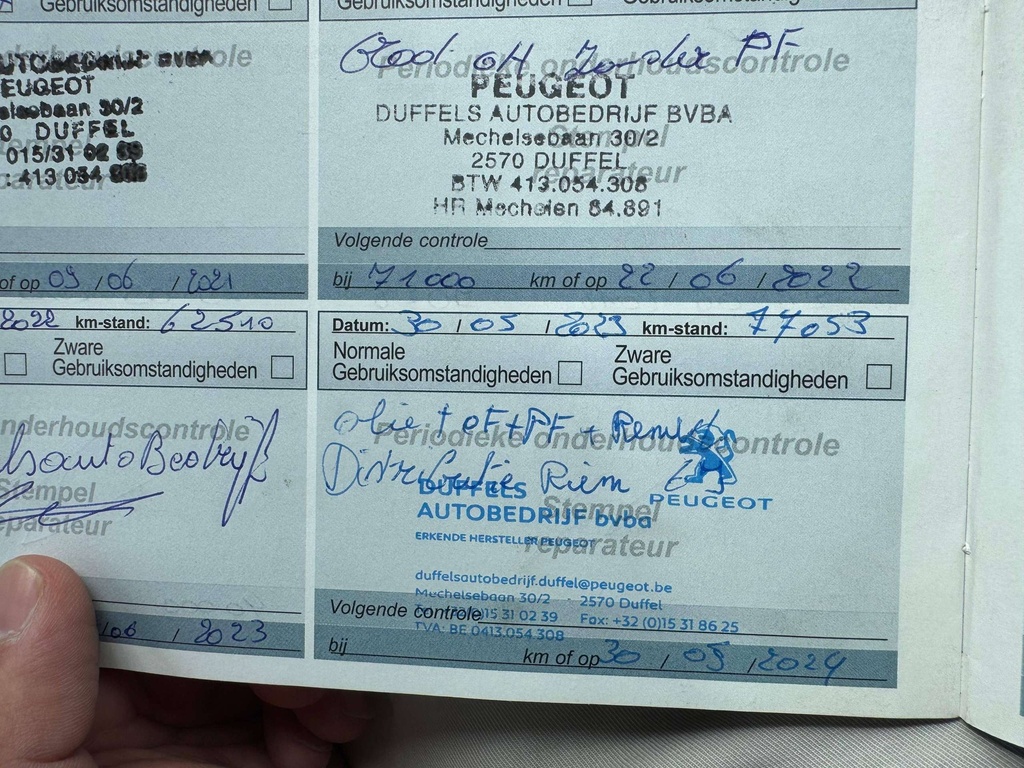 Gebruiksomstandigheden
Gebruiksomstandigheden
Gebruiksomstandigheden
nderhoudscontrole
AUTOBEDRIJF BVBA
PEUGEOT
elsebaan 30/2
0 DUFFEL
015/31 02 39
: 413 054 308
parateur
of op 09 / 06 / 2021
PF
Periodieke onderhoudscontrole
PEUGEOT
DUFFELS AUTOBEDRIJF BVBA
Mechelsebaan 30/2
Stempel
2570 DUFFEL
reparateur
BTW 413.054.308
HR Mechelen 84.891
Volgende controle
bij 71000 km of op 22 / 06 / 2022
2022 km-stand: 62510
Zware
Gebruiksomstandigheden
nderhoudscontrole
Stempel
eparateur
/06 / 2023
Datum: 30 / 05 / 2023 km-stand: 77053
Normale
Gebruiksomstandigheden
Zware
Gebruiksomstandigheden
olie + OF + PF +
Periodieke onderhoudscontrole
Distributie Riem
PEUGEOT
DUFFELS
Stempel
AUTOBEDRIJF bvba
ERKENDE HERSTELLER PEUGEOT
reparateur
duffelsautobedrijf.duffel@peugeot.be
Mechelsebaan 30/2 - 2570 Duffel
Volgende controle
Tel: +32(0)15 31 02 39 Fax: +32 (0)15 31 86 25
TVA: BE 0413.054.308
bij km of op 30 / 05 / 2024